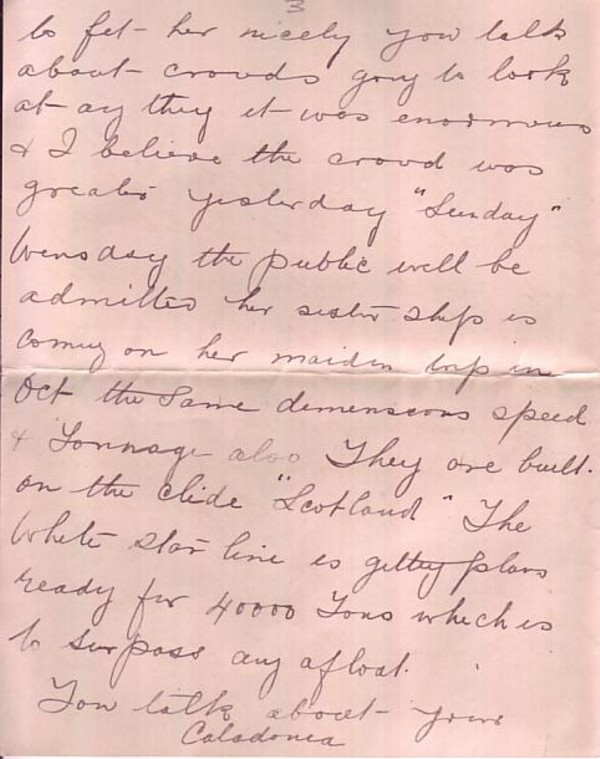 3
to fet - her nicely you talk
about - crowds gony to look
at - any they it was enormous
& I believe the crowd was
greater yesterday "Sunday"
Wensday the public will be
admitted her sister ship is
coming on her maiden trip in
Oct the same demensions speed
& Tonnage also They are built.
on the clide "Scotland" The
White star line is gettng plans
ready for 40000 Tons which is
to surpass any afloat.
You talk about - your
Caladonia